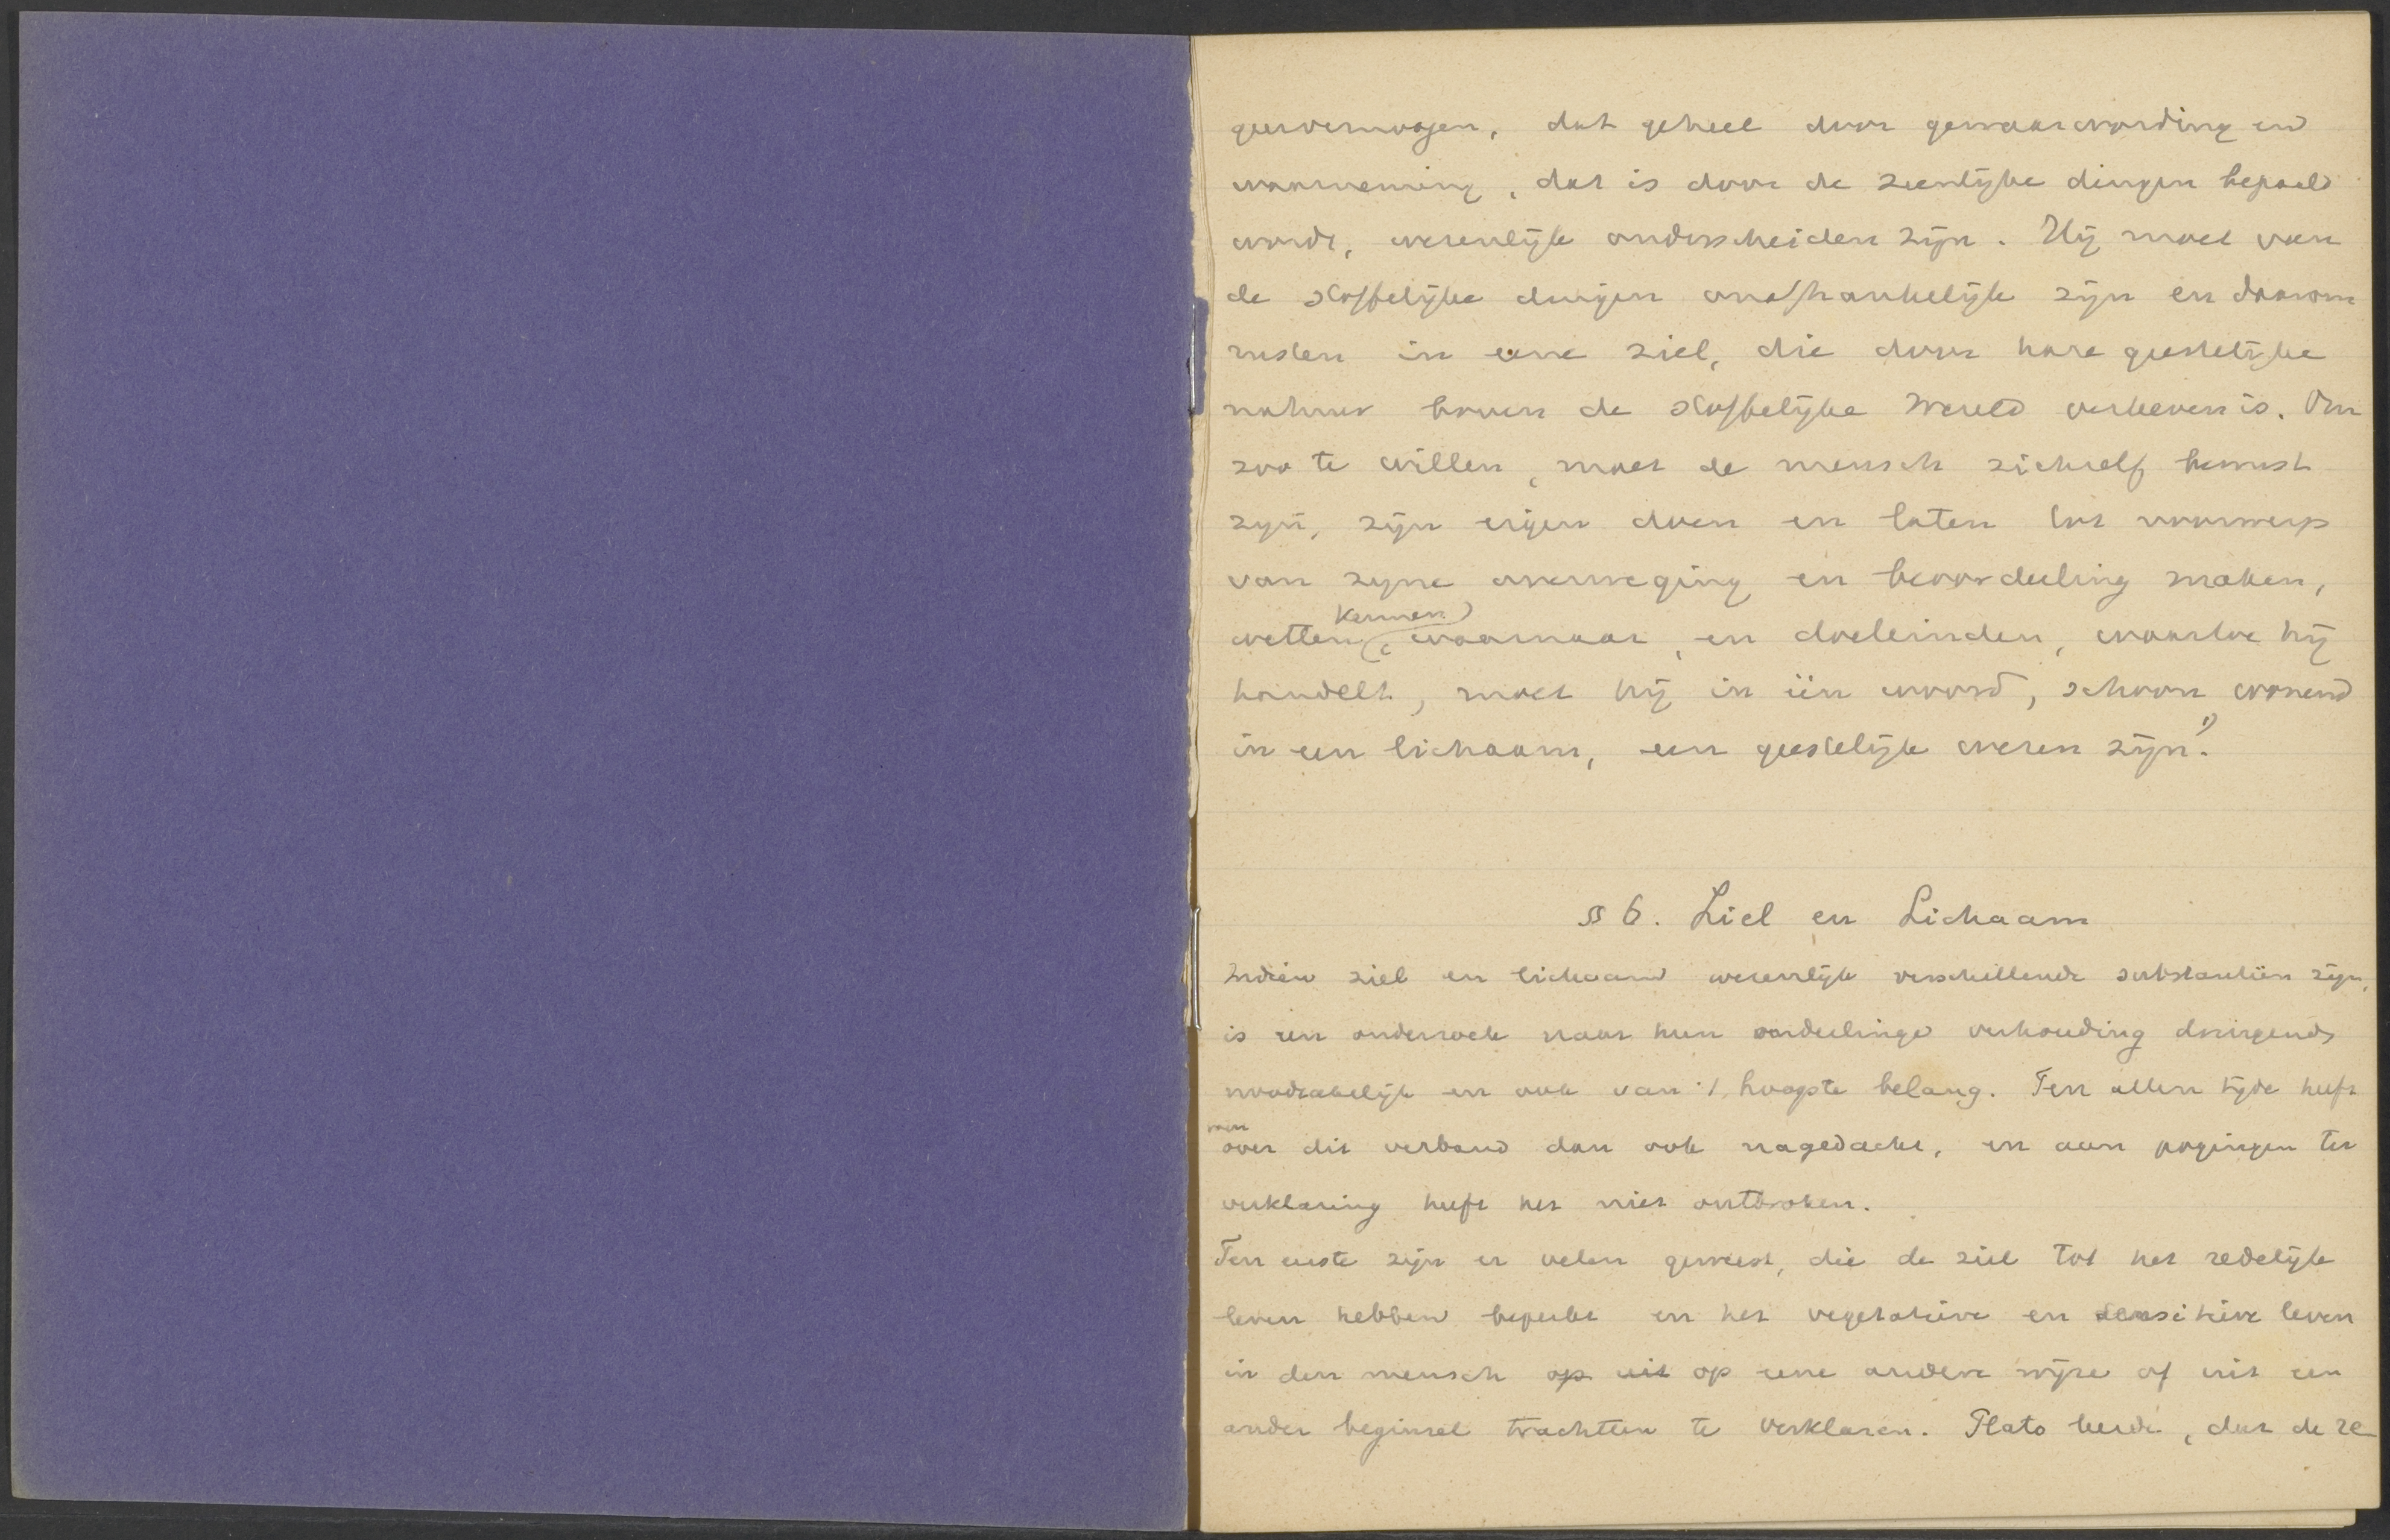 geervermogen, dat geheel door gewaarwording en
waarneming, dat is door de zienlijke dingen bepaald
wordt, wezenlijk onderscheiden zijn. Hij moet van
de stoffelijke dingen onafhankelijk zijn en daarom
rusten in eene ziel, die door hare geestelijke
natuur boven de stoffelijke wereld verheven is. Om
zoo te willen, moet de mensch zichzelf bewust
zijn, zijn eigen doen en laten tot voorwerp
van zijne overweging en beoordeeling maken,
wetten kennen, waarnaar, en doeleinden, waartoe hij
handelt, moet hij in één woord, schoon wonend
in een lichaam, een geestelijk wezen zijn. 1)
§ 6. Ziel en Lichaam
Indien ziel en lichaam wezenlijk verschillende substantiën zijn,
is een onderzoek naar hun onderlinge verhouding dringend
noodzakelijk en ook van 't hoogste belang. Ten allen tijde heeft
men over dit verband dan ook nagedacht, en aan pogingen ter
verklaring heeft het niet ontbroken.
Ten eerste zijn er velen geweest, die de ziel tot het redelijk
leven hebben beperkt en het vegetatieve en sensitieve leven
in den mensch op uit op eene andere wijze of uit een
ander beginsel trachtten te verklaren. Plato leerde, dat de re